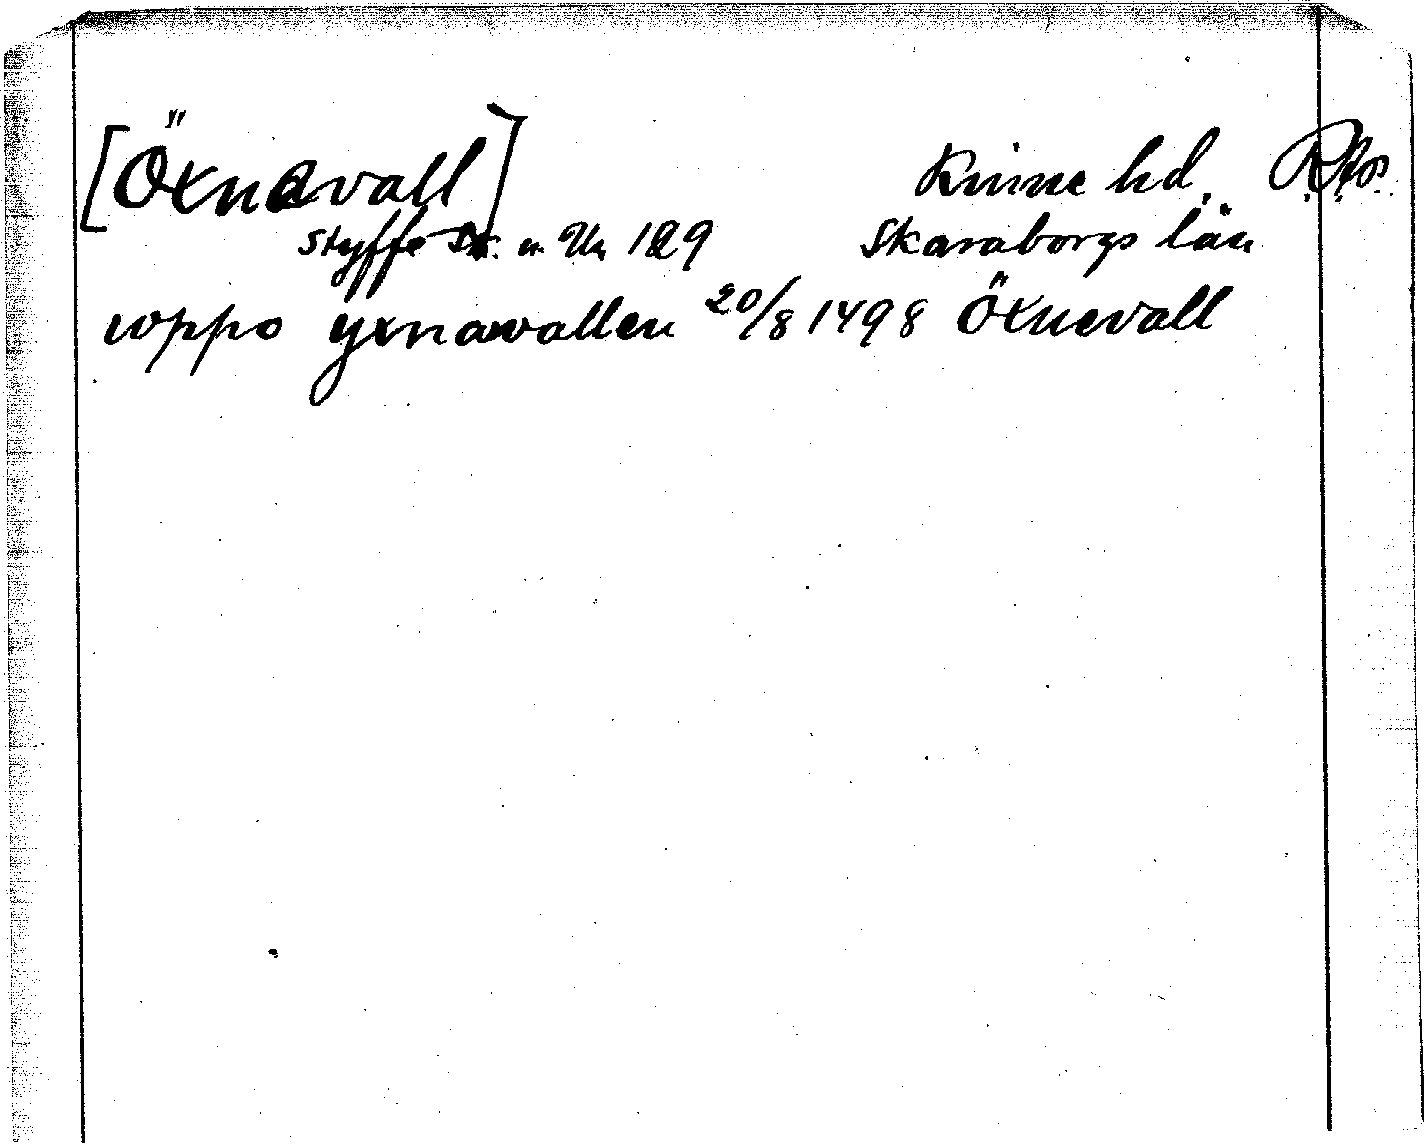 [Öxnevall] Kinne hd.
Styffe Sk. u. Un 189 Skaraborgs län
uppo yxnawallen 20/8 1498 Öxnevall